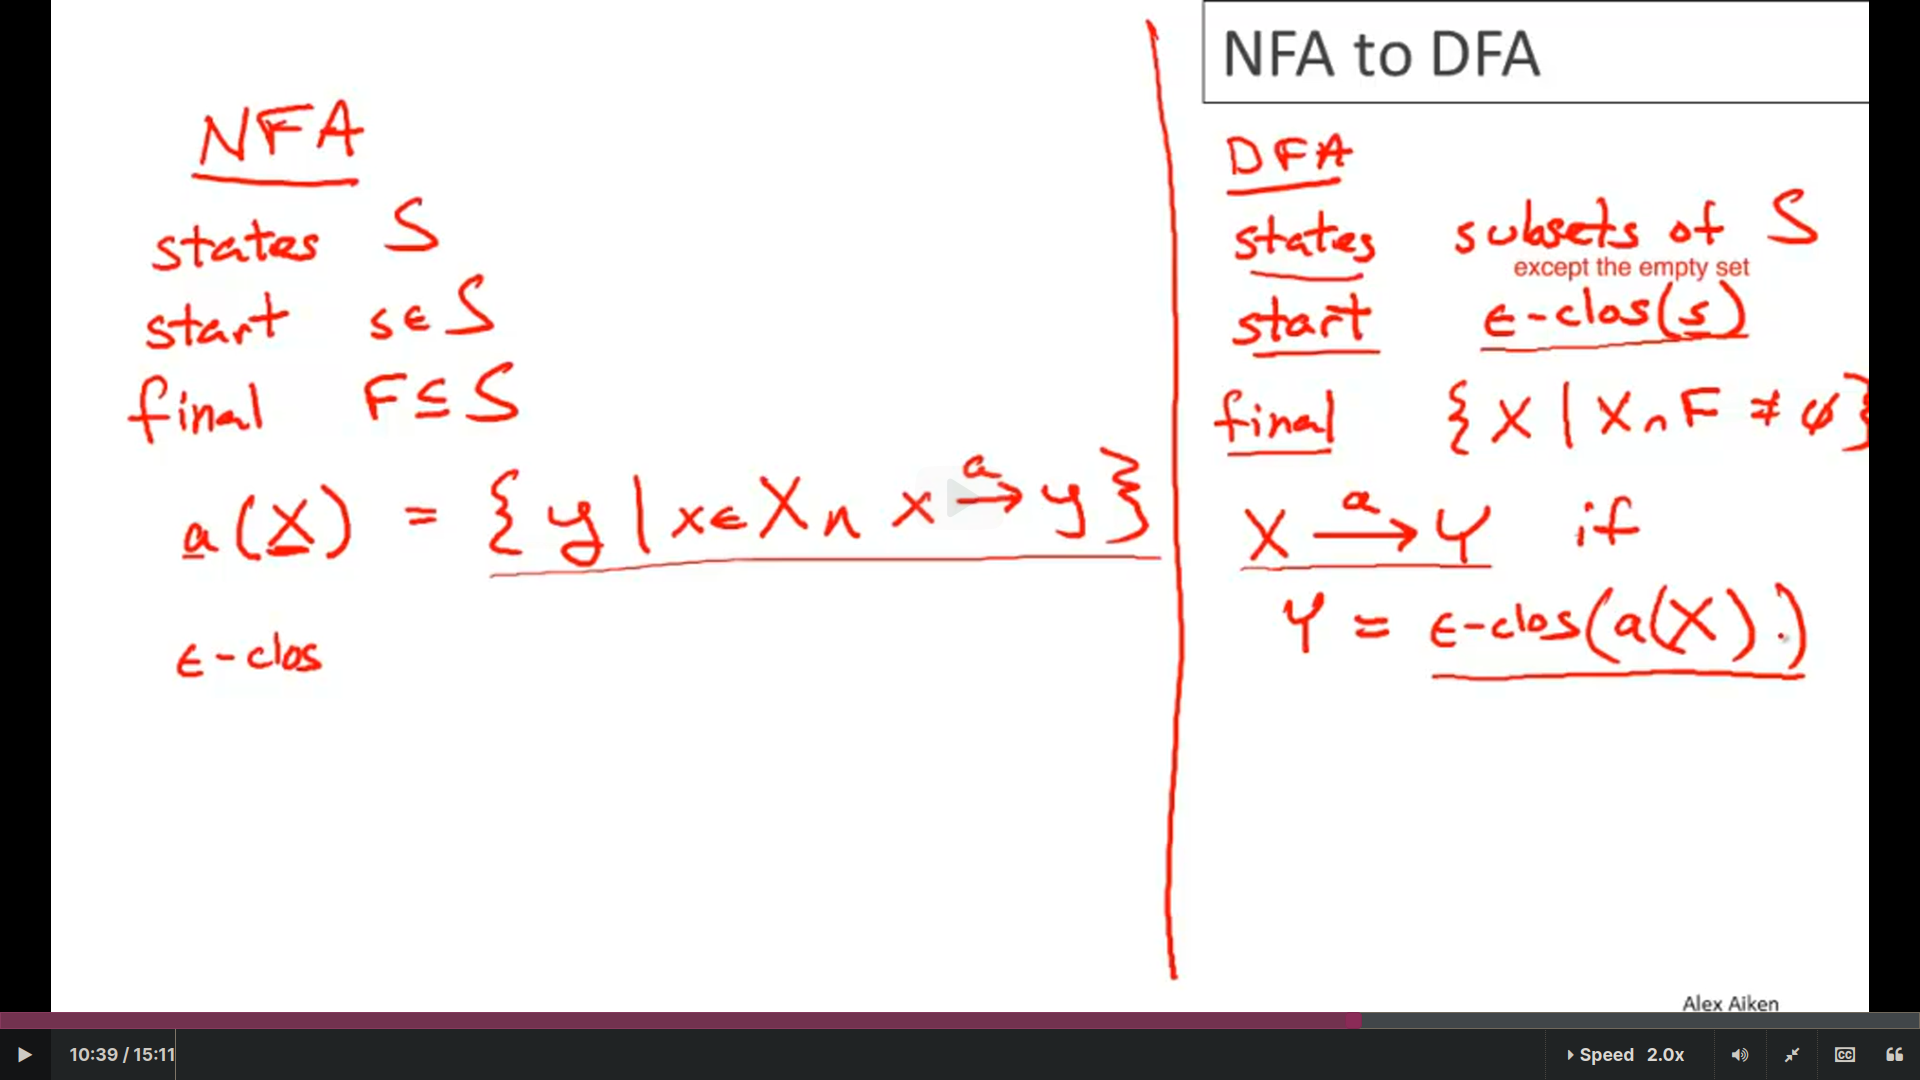 NFA
states S
start s ∈ S
final F ⊆ S
a(X) = { y | x ∈ X ∩ x →a y }
ϵ-clos
NFA to DFA
DFA
states subsets of S
except the empty set
start ϵ-clos(s)
final { X | X ∩ F ≠ ∅ }
X →a Y if
Y = ϵ-clos(a(X).)
Alex Aiken
10:39 / 15:11
Speed 2.0x
CC